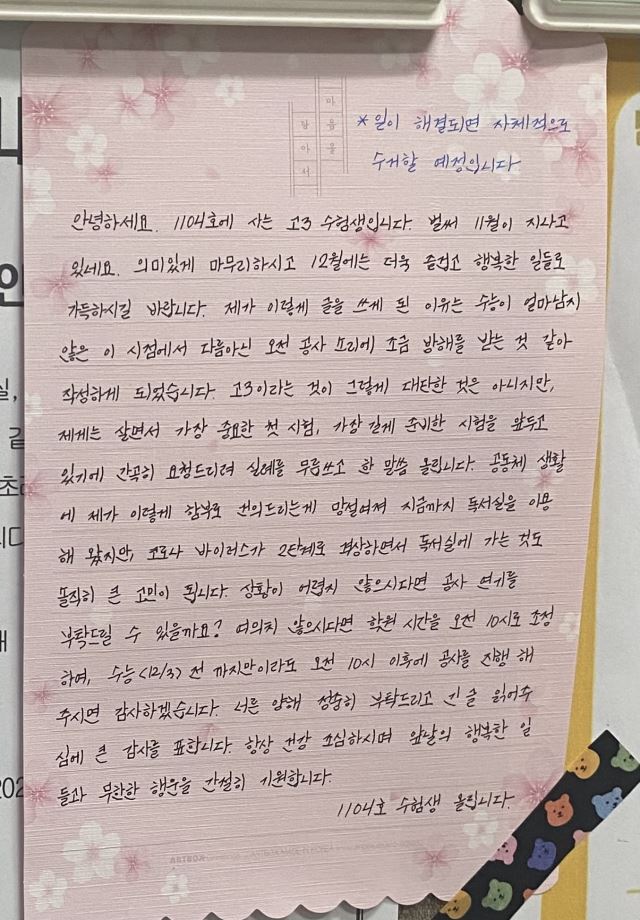 마음을
담아서
*일이 해결되면 자체적으로
수거할 예정입니다
안녕하세요. 1104호에 사는 고3 수험생입니다. 벌써 11월이 지나고
있네요. 의미있게 마무리하시고 12월에는 더욱 즐겁고 행복한 일들로
가득하시길 바랍니다. 제가 이렇게 글을 쓰게 된 이유는 수능이 얼마남지
않은 이 시점에서 다름아닌 오전 공사 소리에 조금 방해를 받는 것 같아
작성하게 되었습니다. 고3이라는 것이 그렇게 대단한 것은 아니지만,
제게는 살면서 가장 중요한 첫 시험, 가장 길게 준비한 시험을 앞두고
있기에 간곡히 요청드리려 실례를 무릅쓰고 한 말씀 올립니다. 공동체 생활
에 제가 이렇게 함부로 건의드리는게 망설여져 지금까지 독서실을 이용
해 왔지만, 코로나 바이러스가 2단계로 격상하면서 독서실에 가는 것도
솔직히 큰 고민이 됩니다. 상황이 어렵지 않으시다면 공사 연기를
부탁드릴 수 있을까요? 여의치 않으시다면 시간을 오전 10시로 조정
하여, 수능(12/3) 전 까지만이라도 오전 10시 이후에 공사를 진행 해
주시면 감사하겠습니다. 너른 양해 정중히 부탁드리고 긴 글 읽어주
심에 큰 감사를 표합니다. 항상 건강 조심하시며 앞날의 행복한 일
들과 무한한 행운을 간절히 기원합니다.
1104호 수험생 올립니다.